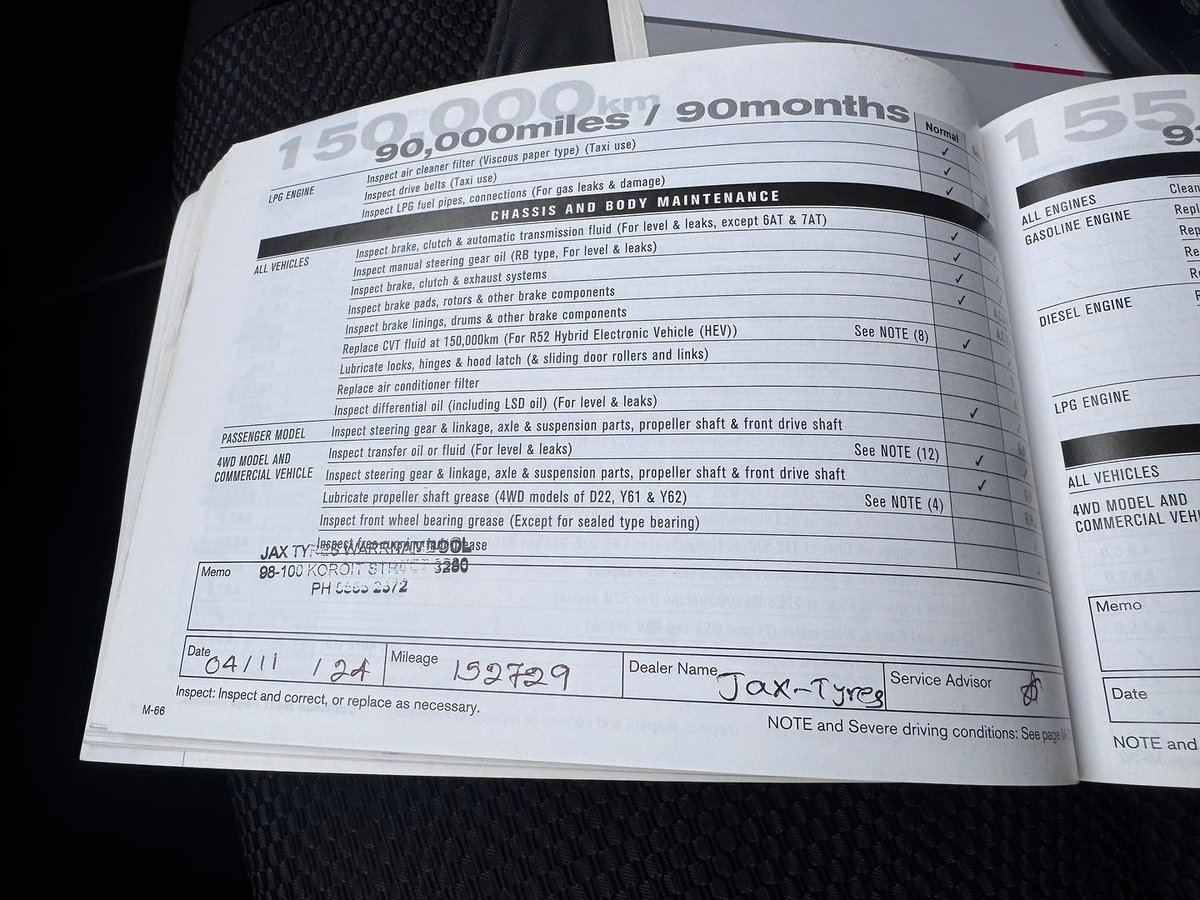 150,000km
90,000miles / 90months
Normal
LPG ENGINE
Inspect air cleaner filter (Viscous paper type) (Taxi use) ✓
Inspect drive belts (Taxi use) ✓
Inspect LPG fuel pipes, connections (For gas leaks & damage) ✓
CHASSIS AND BODY MAINTENANCE
ALL VEHICLES
Inspect brake, clutch & automatic transmission fluid (For level & leaks, except 6AT & 7AT) ✓
Inspect manual steering gear oil (RB type, For level & leaks) ✓
Inspect brake, clutch & exhaust systems ✓
Inspect brake pads, rotors & other brake components ✓
Inspect brake linings, drums & other brake components
Replace CVT fluid at 150,000km (For R52 Hybrid Electronic Vehicle (HEV)) See NOTE (8) ✓
Lubricate locks, hinges & hood latch (& sliding door rollers and links)
Replace air conditioner filter
Inspect differential oil (including LSD oil) (For level & leaks) ✓
PASSENGER MODEL
Inspect steering gear & linkage, axle & suspension parts, propeller shaft & front drive shaft
4WD MODEL AND
COMMERCIAL VEHICLE
Inspect transfer oil or fluid (For level & leaks) See NOTE (12) ✓
Inspect steering gear & linkage, axle & suspension parts, propeller shaft & front drive shaft ✓
Lubricate propeller shaft grease (4WD models of D22, Y61 & Y62) See NOTE (4)
Inspect front wheel bearing grease (Except for sealed type bearing)
JAX TYRES WARRNAMBOOL
98-100 KOROIT STREET 3280
Memo
Date 04/11/24
Mileage 152729
Dealer Name Jax-Tyres
Service Advisor
Inspect: Inspect and correct, or replace as necessary.
M-66
NOTE and Severe driving conditions: See page
155
ALL ENGINES
GASOLINE ENGINE
DIESEL ENGINE
LPG ENGINE
ALL VEHICLES
4WD MODEL AND
Memo
Date
NOTE and